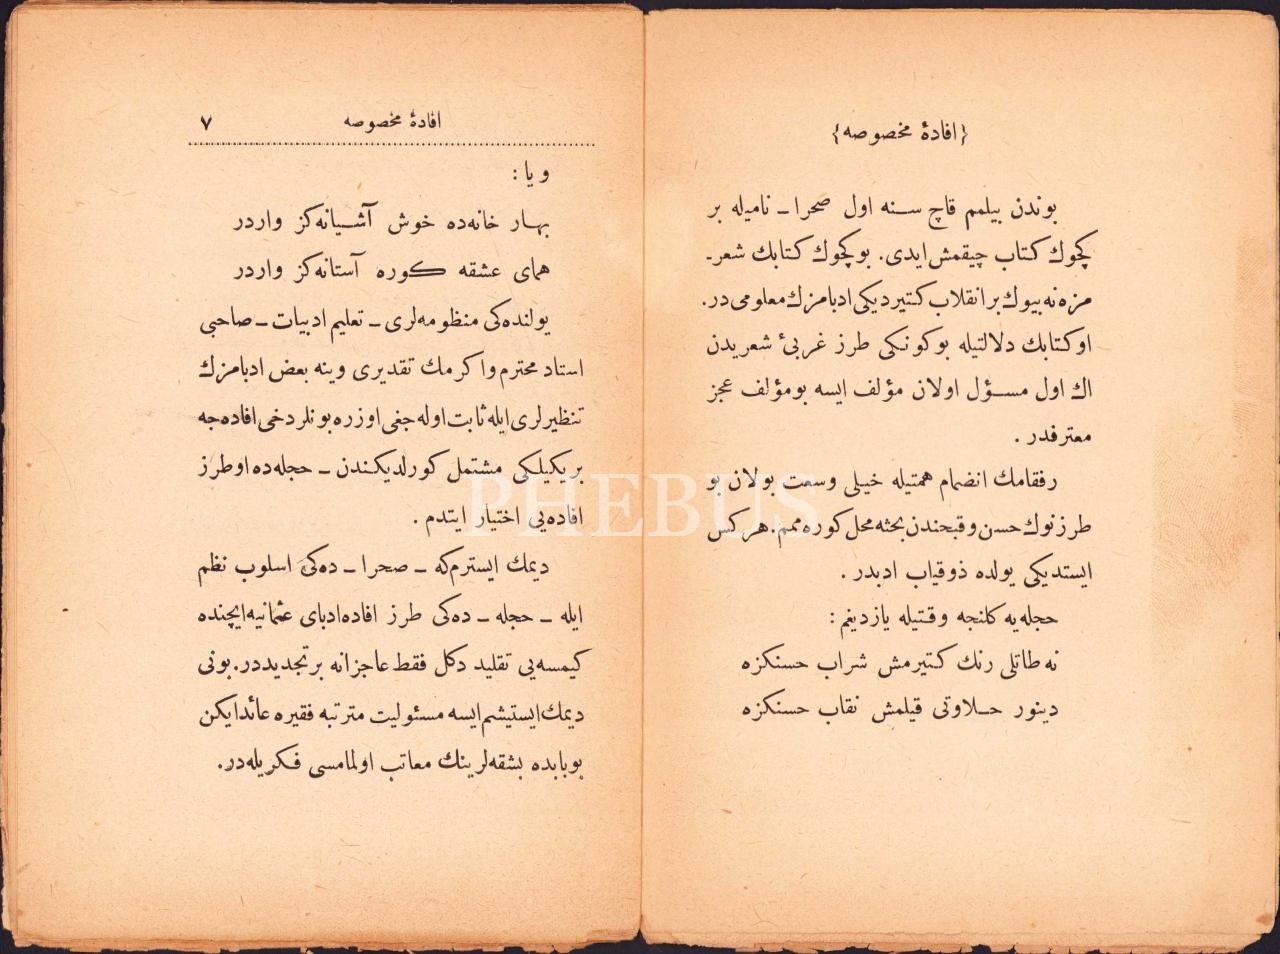 {افادهٔ مخصوصه}
بوندن بیلمم قاچ سـنه اول صحرا ـ نامیله بر
کچوك کتاب چیقمش ایدی. بو کچوك کتابك شعر-
مزه نه بیوك بر انقلاب کتیردیکی ادبامزك معلومی در.
او کتابك دلالتیله بو کونکی طرز غربیٔ شعریدن
اك اول مسـؤل اولان مؤلف ایسه بو مؤلف عجز
معترفدر.
رفقامك انضمام همتیله خیلی وسعت بولان بو
طرز نوك حسن و قبحندن بحثه محل کوره مم. هرکس
ایستدیکی یولده ذوقیاب ادبدر.
حجله یه کلنجه وقتیله یازدیغم:
نه طاتلی رنك کتیرمش شراب حسنکزه
دینور حـلاوتی قیلمش نقاب حسنکزه
افادهٔ مخصوصه ٧
ویا:
بهـار خانه ده خوش آشـیانه کز واردر
همای عشقه کوره آستانه کز واردر
یولنده کی منظومه لری ـ تعلیم ادبیات ـ صاحبی
استاد محترم و اکرمك تقدیری وینه بعض ادبامزك
تنظیرلری ایله ثابت اوله جغی اوزره بونلر دخی افاده جه
بر یکیلکی مشتمل کورلدیکندن ـ حجله ده او طرز
افاده یی اختیار ایتدم.
دیمك ایسترم که ـ صحرا ـ ده کی اسلوب نظم
ایله ـ حجله ـ ده کی طرز افاده ادبای عثمانیه ایچنده
کیمسه یی تقلید دکل فقط عاجزانه بر تجدیددر. بونی
دیمك ایستیشم ایسه مسئولیت مترتبه فقیره عائد ایکن
بوبابده بشقه لرینك معاتب اولمامسی فکریله در.
PHEBUS